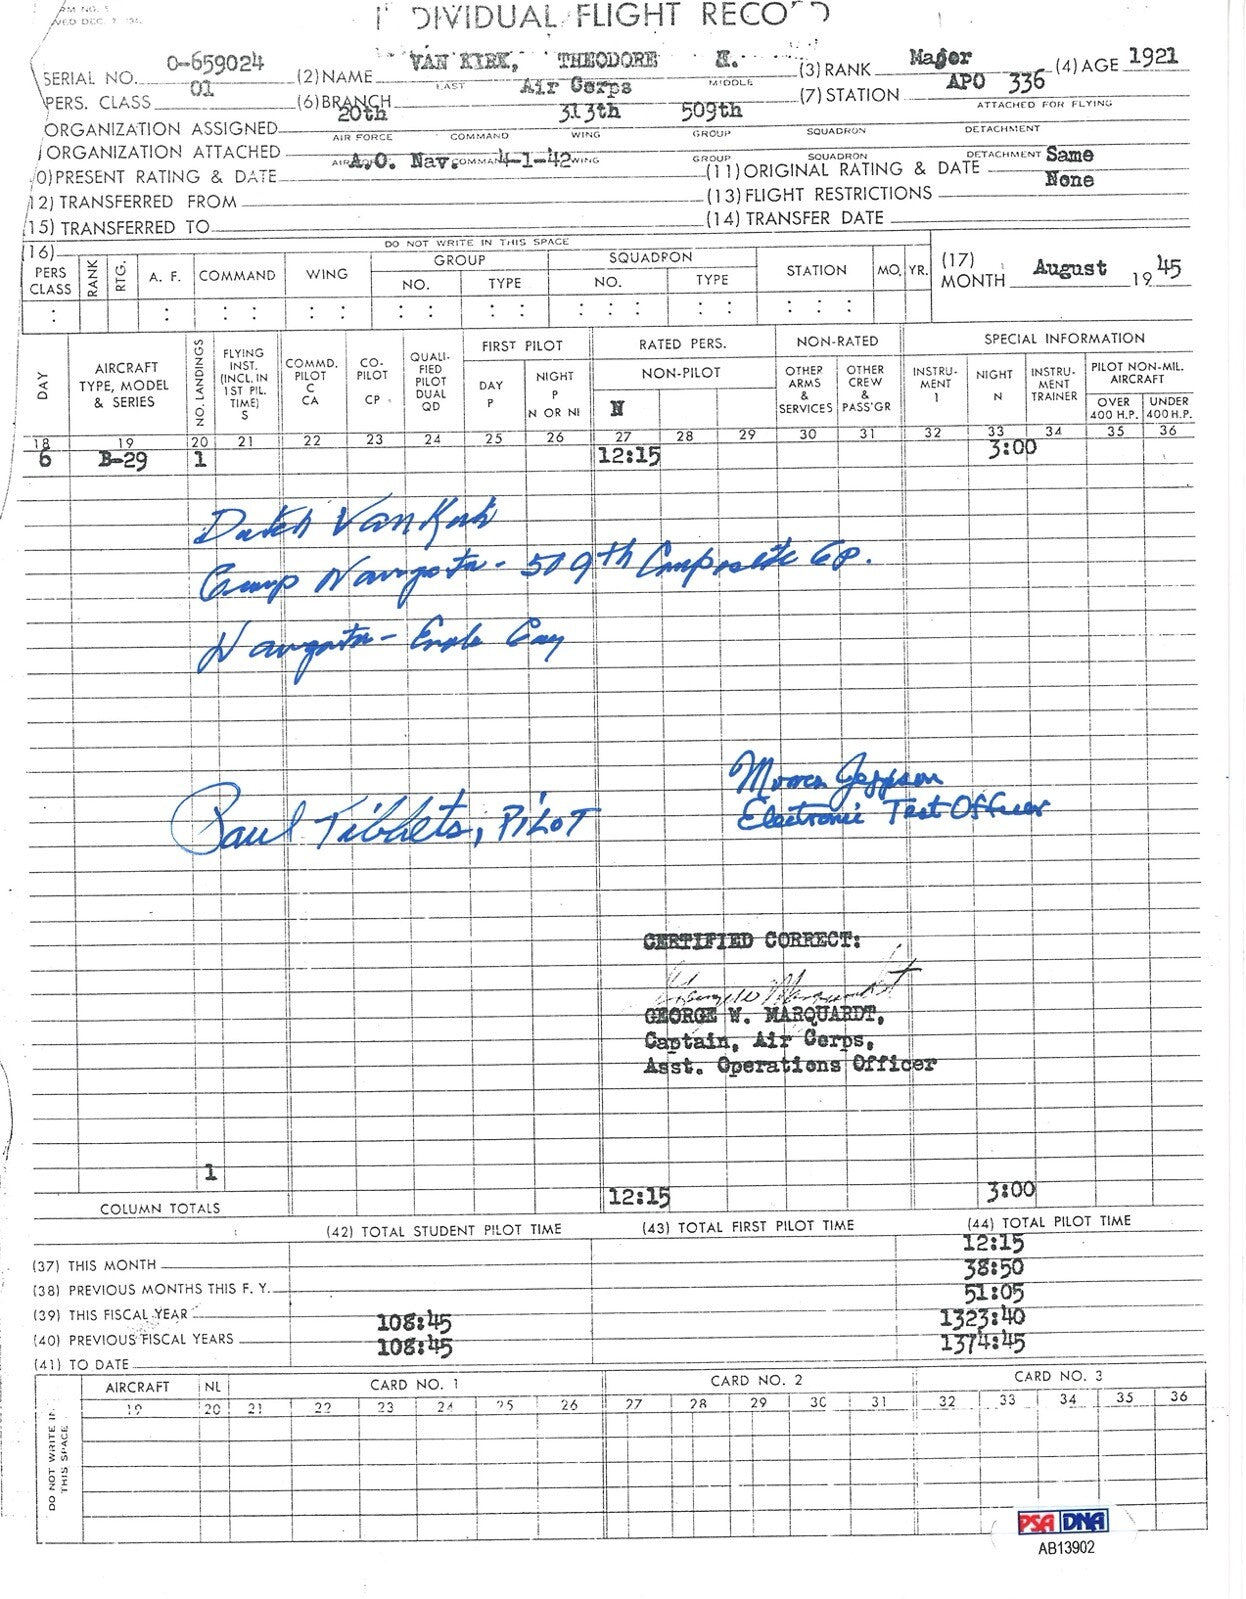 INDIVIDUAL FLIGHT RECORD
SERIAL NO. O-659024 (2) NAME VAN KIRK, THEODORE (3) RANK Major (4) AGE 1921
LAST MIDDLE
PERS. CLASS 01 (6) BRANCH Air Corps (7) STATION APO 336
ATTACHED FOR FLYING
ORGANIZATION ASSIGNED 20th 313th 509th
AIR FORCE COMMAND WING GROUP SQUADRON DETACHMENT
ORGANIZATION ATTACHED
COMMAND WING GROUP SQUADRON DETACHMENT
0) PRESENT RATING & DATE A.O. Nav. 4-1-42 (11) ORIGINAL RATING & DATE Same
12) TRANSFERRED FROM (13) FLIGHT RESTRICTIONS None
(15) TRANSFERRED TO (14) TRANSFER DATE
(16) DO NOT WRITE IN THIS SPACE
PERS CLASS RANK RTG. A. F. COMMAND WING GROUP NO. TYPE SQUADRON NO. TYPE STATION MO. YR. (17) MONTH August 19 45
DAY AIRCRAFT TYPE, MODEL & SERIES NO. LANDINGS FLYING INST. (INCL. IN 1ST PIL. TIME) S COMMD. PILOT C CA CO-PILOT CP QUALI-FIED PILOT DUAL QD FIRST PILOT DAY P NIGHT P N OR NI RATED PERS. NON-PILOT N NON-RATED OTHER ARMS & SERVICES OTHER CREW & PASS'GR SPECIAL INFORMATION INSTRU-MENT I NIGHT N INSTRU-MENT TRAINER PILOT NON-MIL. AIRCRAFT OVER 400 H.P. UNDER 400 H.P.
18 19 20 21 22 23 24 25 26 27 28 29 30 31 32 33 34 35 36
6 B-29 1 12:15 3:00
Dutch VanKirk
Group Navigator - 509th Composite Gp.
Navigator - Enola Gay
Morris Jeppson
Electronic Test Officer
Paul Tibbets, PILOT
CERTIFIED CORRECT:
George W Marquardt
GEORGE W. MARQUARDT,
Captain, Air Corps,
Asst. Operations Officer
1
COLUMN TOTALS 12:15 3:00
(42) TOTAL STUDENT PILOT TIME (43) TOTAL FIRST PILOT TIME (44) TOTAL PILOT TIME
(37) THIS MONTH 12:15
(38) PREVIOUS MONTHS THIS F. Y. 38:50
(39) THIS FISCAL YEAR 51:05
(40) PREVIOUS FISCAL YEARS 108:45 1323:40
(41) TO DATE 108:45 1374:45
DO NOT WRITE IN THIS SPACE
AIRCRAFT NL CARD NO. 1 CARD NO. 2 CARD NO. 3
19 20 21 22 23 24 25 26 27 28 29 30 31 32 33 34 35 36
PSA DNA
AB13902